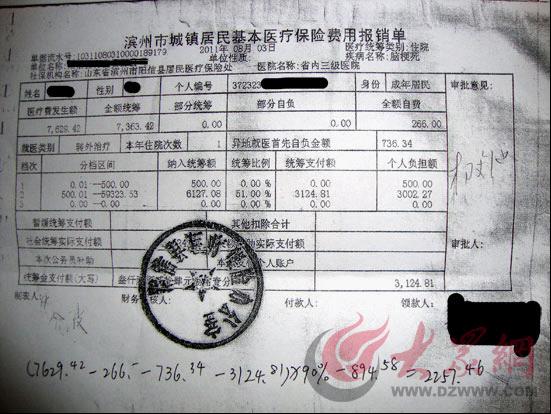 滨州市城镇居民基本医疗保险费用报销单
单据流水号:1031108031000018 9179 2011年 08月 03日 医疗统筹类别:住院
单位名称: 单位性质: 疾病名称:脑梗死
社保机构名称:山东省滨州市阳信县居民医疗保险处 医院名称:省内三级医院
姓名 性别 个人编号 372323 身份 成年居民 审批意见:
医疗费发生额 全额统筹 部分统筹 部分自负 全额自费
7,629.42 7,363.42 0.00 0.00 266.00
就医类别 转外治疗 本年住院次数 1 异地就医首先自负金额 736.34
档次 分档区间 纳入统筹额 统筹比例 统筹支付额 个人负担额
1 0.01--500.00 500.00 0.00 % 0.00 500.00
2 500.01--59323.53 6127.08 51.00 % 3124.81 3002.27
3 0.00--0.00 0.00 0.00 % 0.00 0.00
暂缓统筹支付额 其他扣除合计
社会统筹实际支付额 助实际支付额 审批人:
本次公务员补助 本 个人账户
统筹金支付额(大写) 叁仟 肆元 壹分 3,124.81
制表人: 财务 付款人: 领款人:
(7629.42-266.-736.34-3124.81)×90%-894.58=2257.46
大众网
WWW.DZWWW.COM